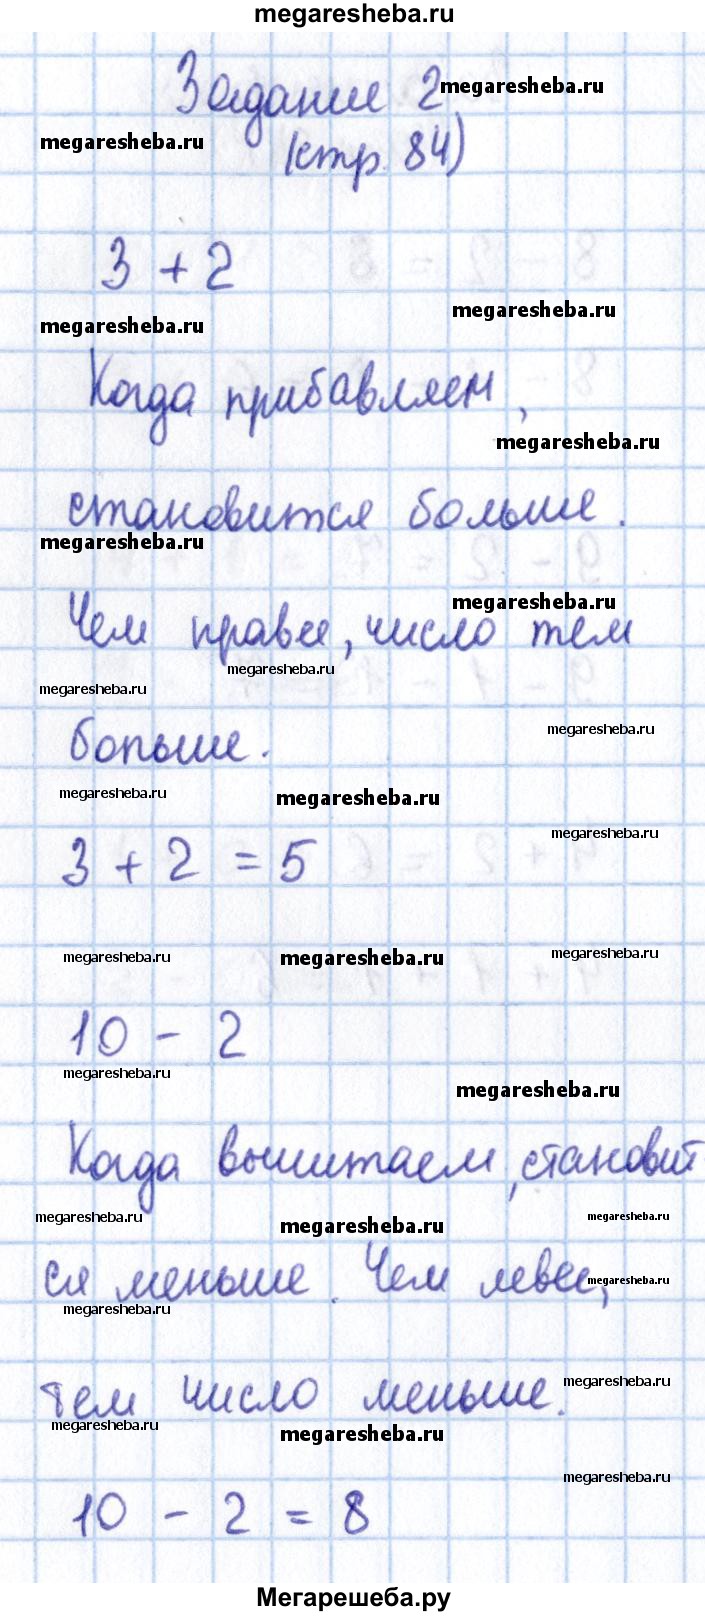 megaresheba.ru
Задание 2 megaresheba.ru
megaresheba.ru
(стр. 84)
3 + 2
megaresheba.ru
megaresheba.ru
Когда прибавляем,
megaresheba.ru
становится больше.
megaresheba.ru
megaresheba.ru
Чем правее, число тем
megaresheba.ru
megaresheba.ru
больше.
megaresheba.ru
megaresheba.ru
megaresheba.ru
megaresheba.ru
3 + 2 = 5
megaresheba.ru
megaresheba.ru
megaresheba.ru
10 - 2
megaresheba.ru
megaresheba.ru
Когда вычитаем, становит
megaresheba.ru
megaresheba.ru
megaresheba.ru
ся меньше. Чем левее,
megaresheba.ru
megaresheba.ru
тем число меньше.
megaresheba.ru
megaresheba.ru
megaresheba.ru
megaresheba.ru
10 - 2 = 8
Мегарешеба.ру